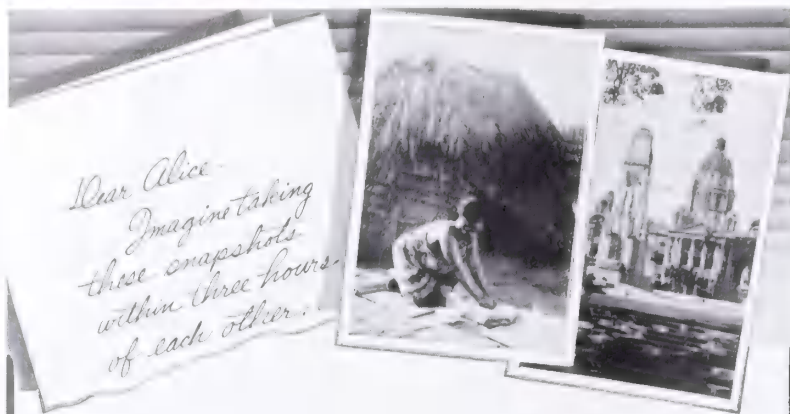 Dear Alice-
Imagine taking
these snapshots
within three hours.
of each other.